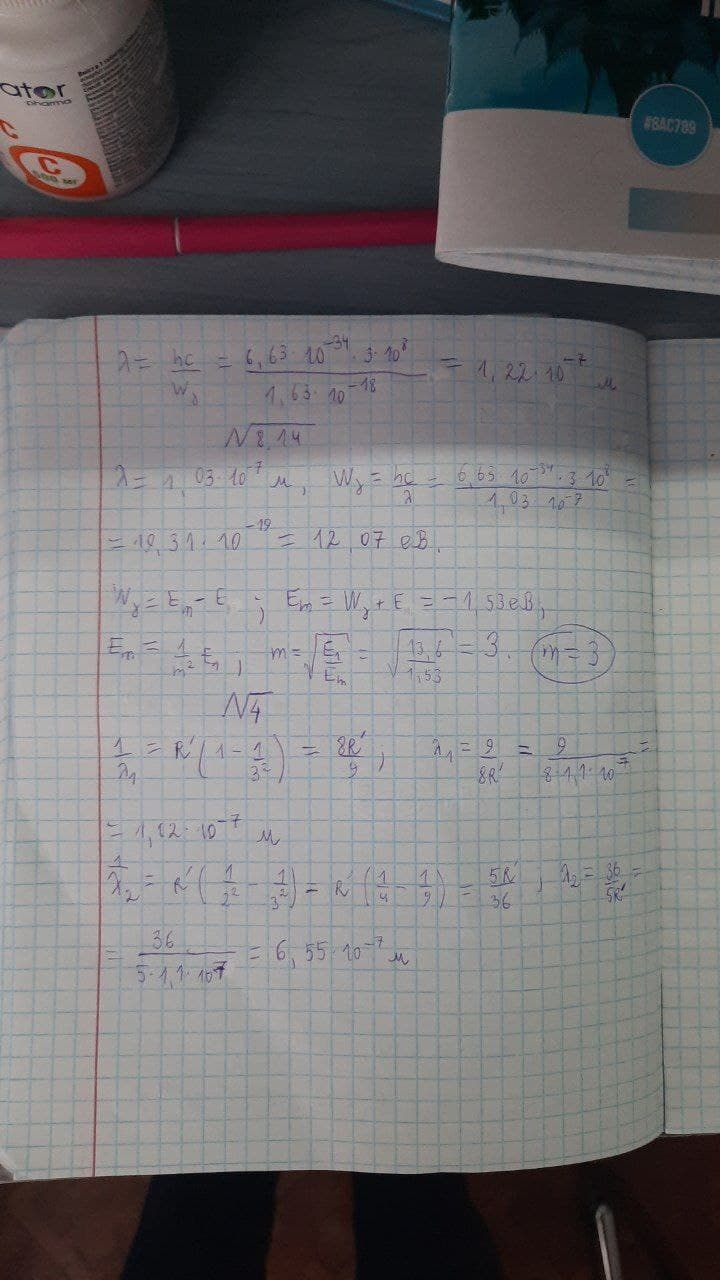 ator
pharma
C
C
#8AC789
λ = hc/W₂ = 6,63·10⁻³⁴·3·10⁸ / 1,63·10⁻¹⁸ = 1,22·10⁻⁷ м
√8.14
λ = 1,03·10⁻⁷ м, W₂ = hc/λ = 6,63·10⁻³⁴·3·10⁸ / 1,03·10⁻⁷ =
= 19,31·10⁻¹⁹ = 12,07 еВ.
W₂ = Eₘ - E ; Eₘ = W₂ + E = -1,53 еВ,
Eₘ = 1/m² E₁, m = √(E₁/Eₘ) = √(13,6/1,53) = 3. m = 3
√4
1/λ₁ = R'(1 - 1/3²) = 8R'/9 ; λ₁ = 9/8R' = 9/8·1,1·10⁷ =
= 1,02·10⁻⁷ м
1/λ₂ = R'(1/2² - 1/3²) = R'(1/4 - 1/9) = 5R'/36 ; λ₂ = 36/5R' =
= 36/5·1,1·10⁷ = 6,55·10⁻⁷ м